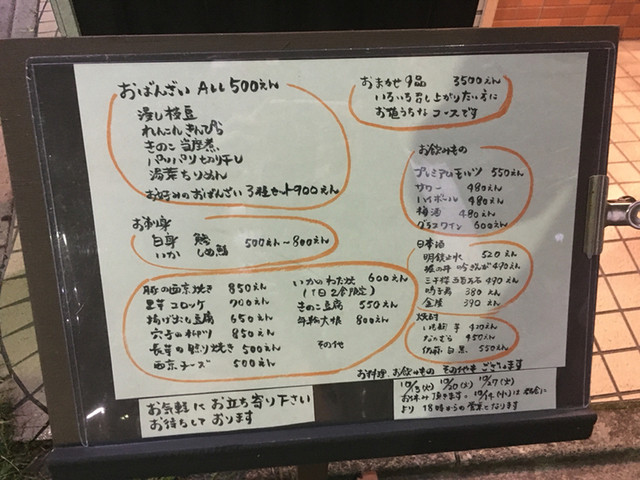 おばんざい ALL 500えん
浸し枝豆
れんこんきんぴら
きのこ当座煮
パリパリ切り干し
湯葉ちりめん
お好みのおばんざい 3種セット900えん
おまかせ9品 3500えん
いろいろ召し上がりたい方に
お値うちなコースです
お飲みもの
プレミアムモルツ 550えん
サワー 480えん
ハイボール 480えん
梅酒 480えん
グラスワイン 600えん
お刺身
白身
いか しめ鯖 500えん~800えん
日本酒
明鏡止水 520えん
吟ぎんが 490えん
三千櫻 五百万石 490えん
鳴子 380えん
金 390えん
焼酎
いも 芋 420えん
450えん
佐藤 白 黒 550えん
豚の西京焼き 850えん
里芋コロッケ 700えん
揚げだし豆腐 650えん
穴子の柳川 850えん
長芋の照り焼き 500えん
西京チーズ 500えん
いかのわた焼 600えん
(1日2食限定)
きのこ豆腐 550えん
牛すじ大根 800えん
その他
お料理、お飲みもの その他もございます
お気軽にお立ち寄り下さい
お待ちしております
10/3(火) 10/10(火) 10/17(火)
お休み頂きます。10/14(土)は都合に
より 18時からの営業となります